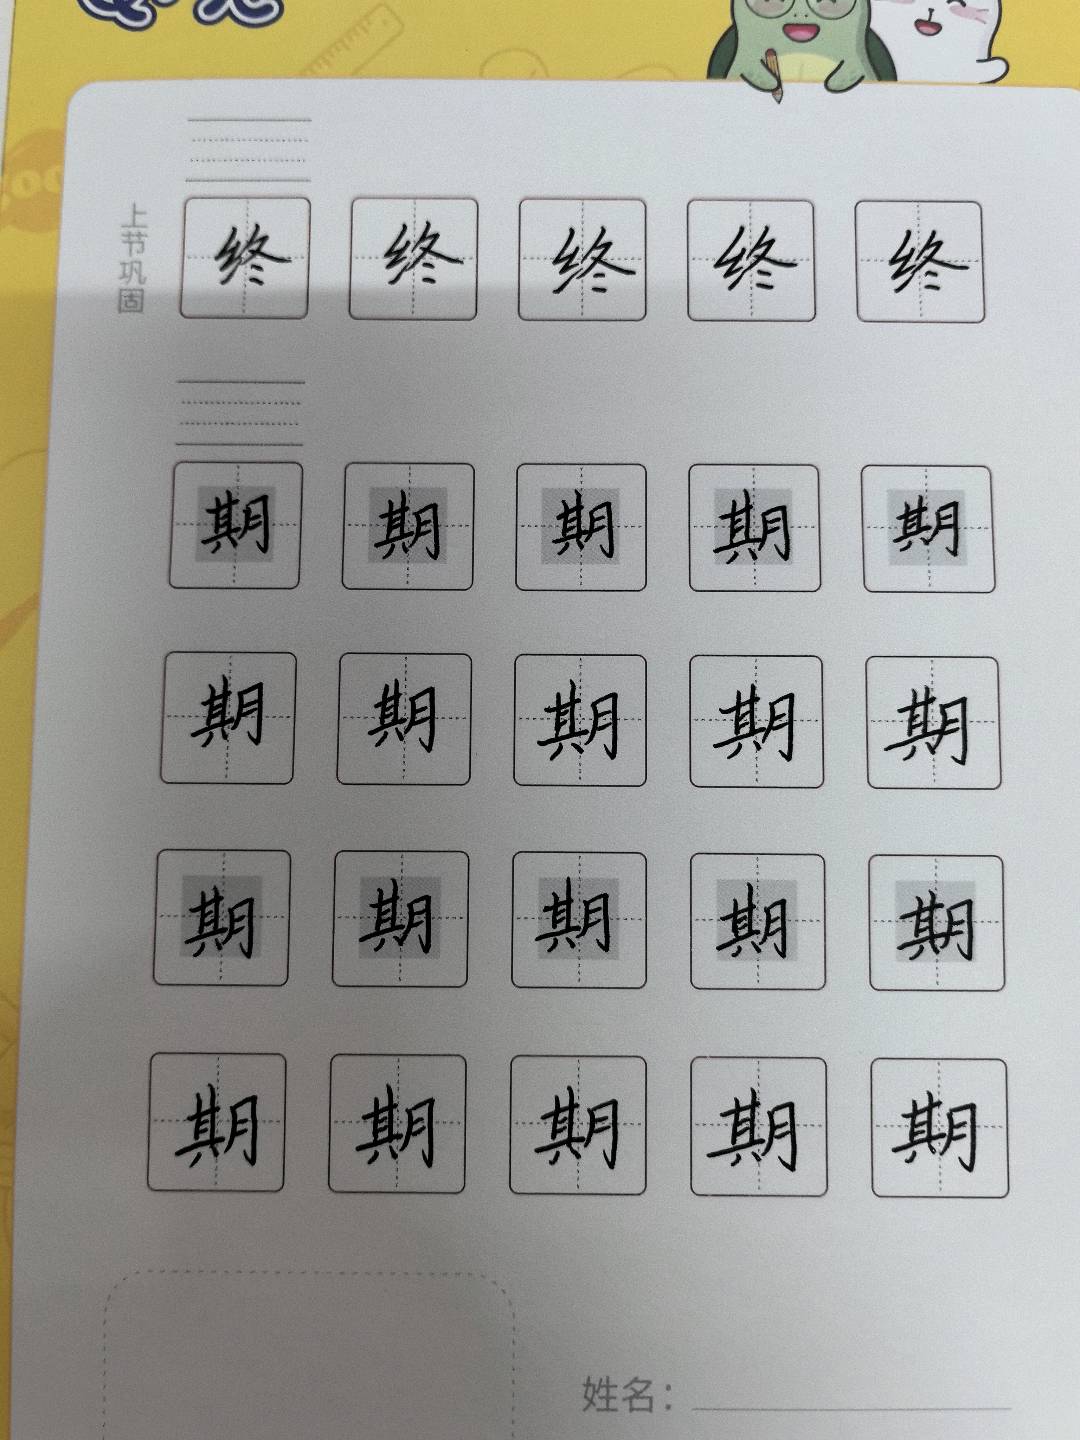 上节巩固
终 终 终 终 终
期 期 期 期 期
期 期 期 期 期
期 期 期 期 期
期 期 期 期 期
姓名：